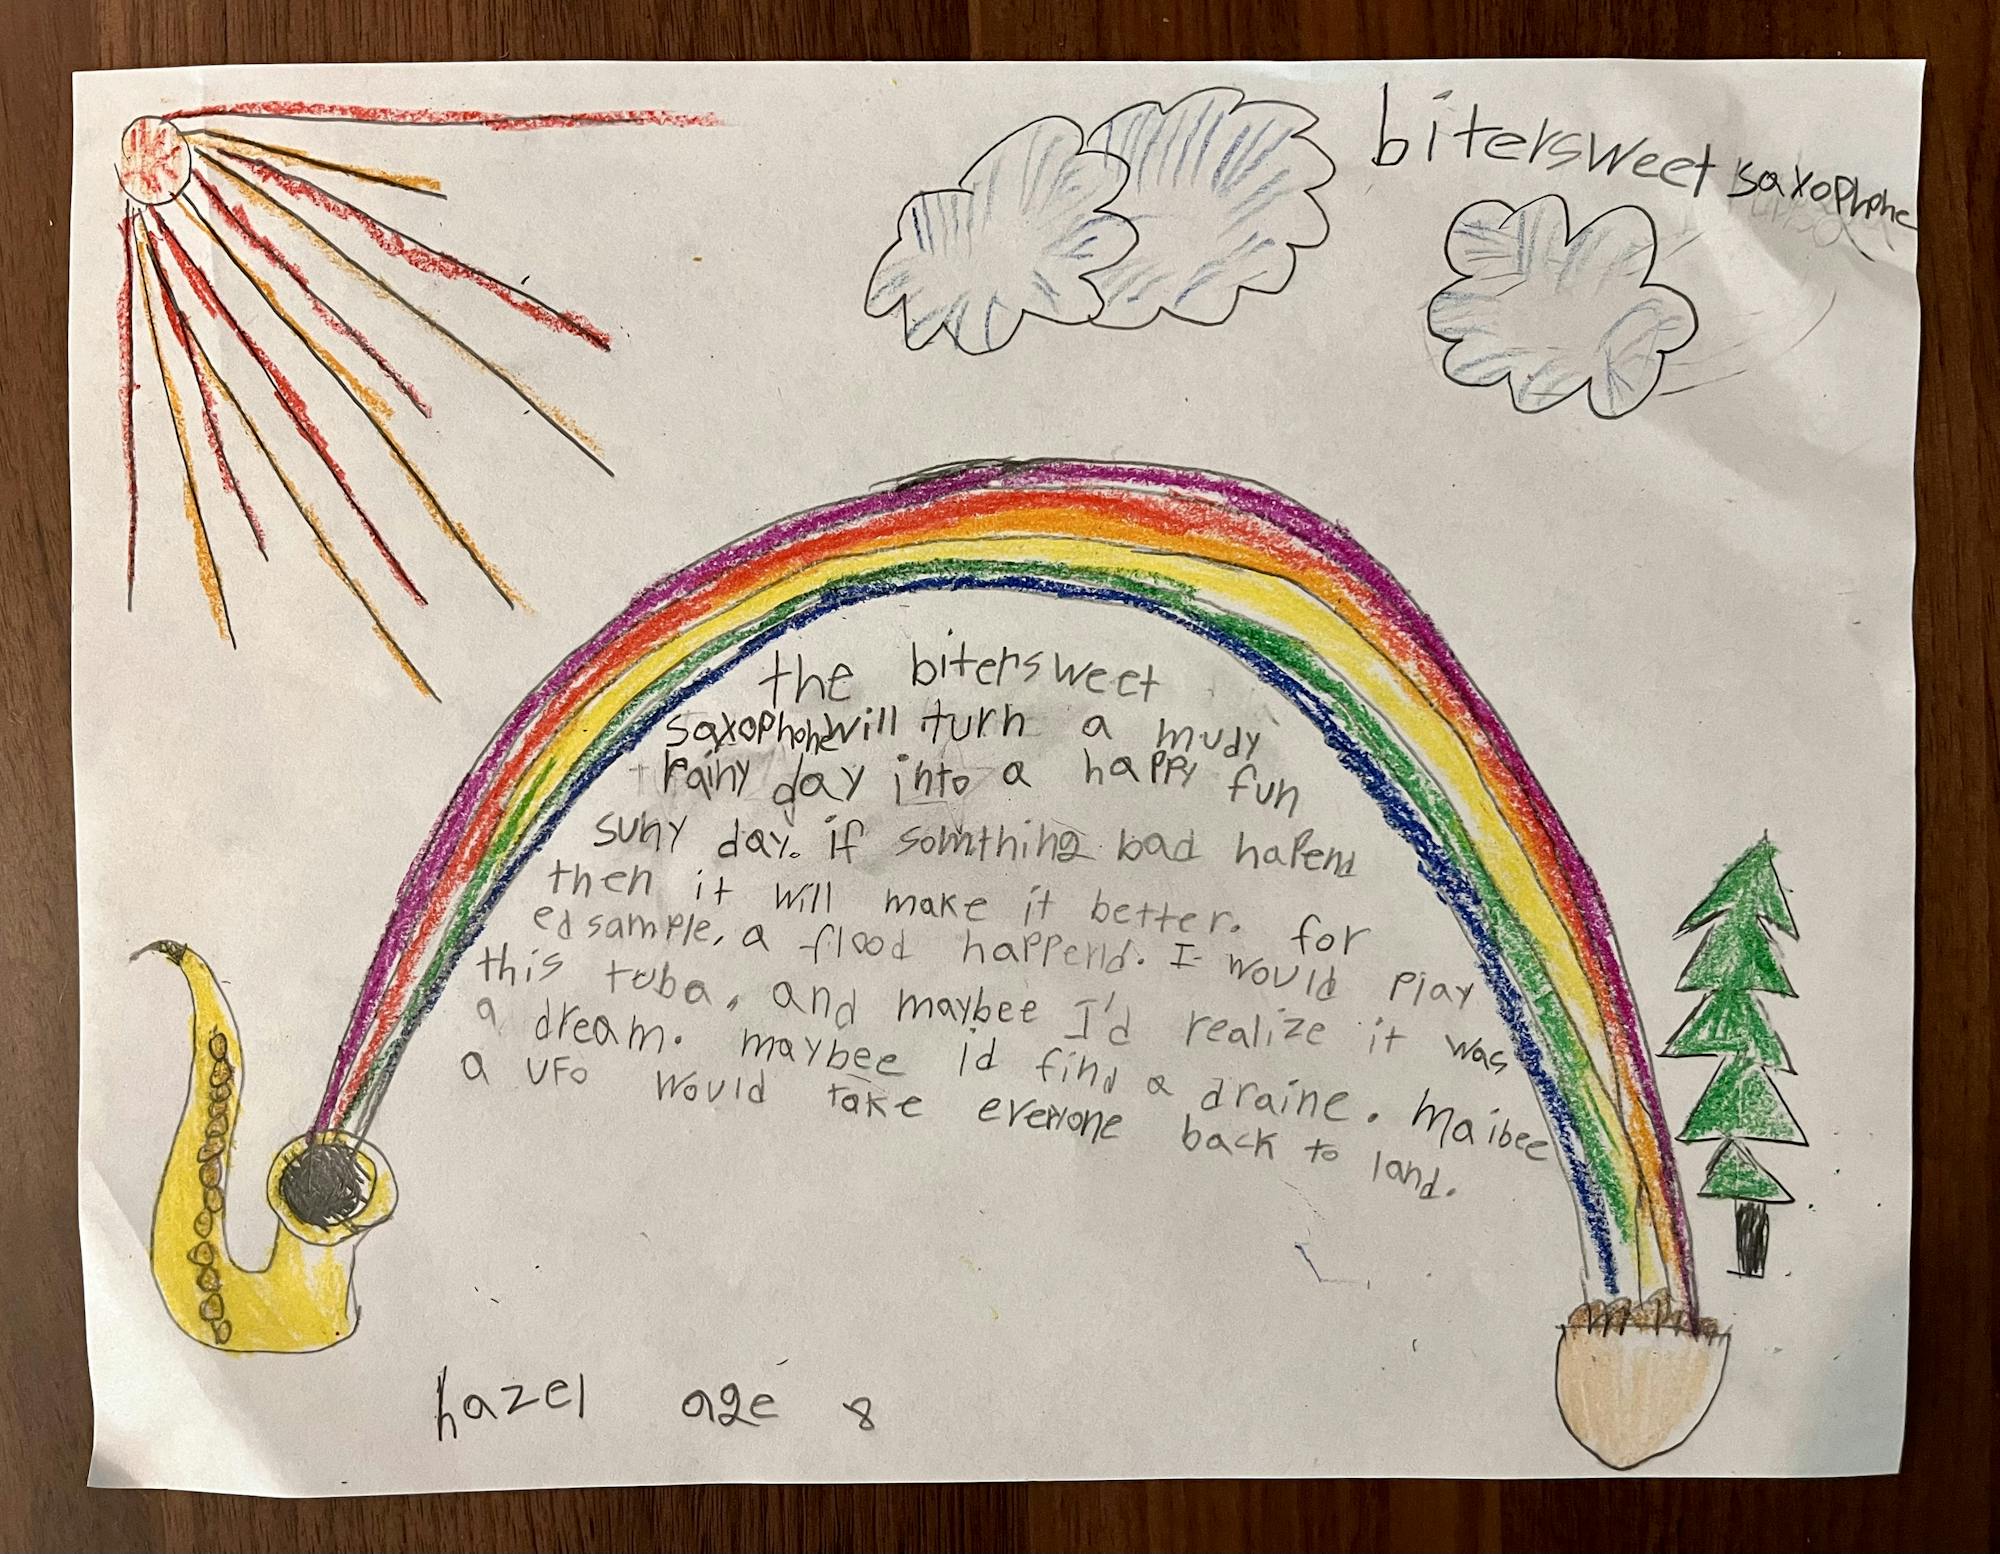 bitersweet saxophone
the bitersweet
saxophone will turn a mudy
rainy day into a happy fun
suny day. if somthing bad hapend
then it will make it better. for
edsample, a flood happend. I would play
this tuba, and maybee I'd realize it was
a dream. maybee id find a draine. maibee
a UFO would take everyone back to land.
hazel age 8